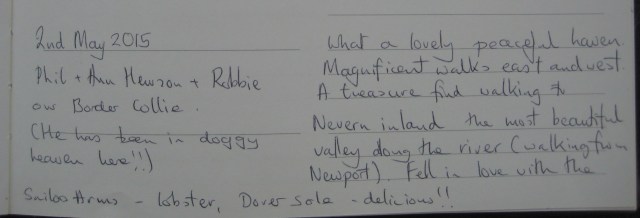 2nd May 2015
Phil + Ann Hewson + Robbie
our Border Collie.
(He has been in doggy
heaven here!!)
What a lovely peaceful haven.
Magnificent walks east and west.
A treasure find walking to
Nevern inland the most beautiful
valley along the river (walking from
Newport). Fell in love with the
Sailors Arms - lobster, Dover Sole - delicious!!